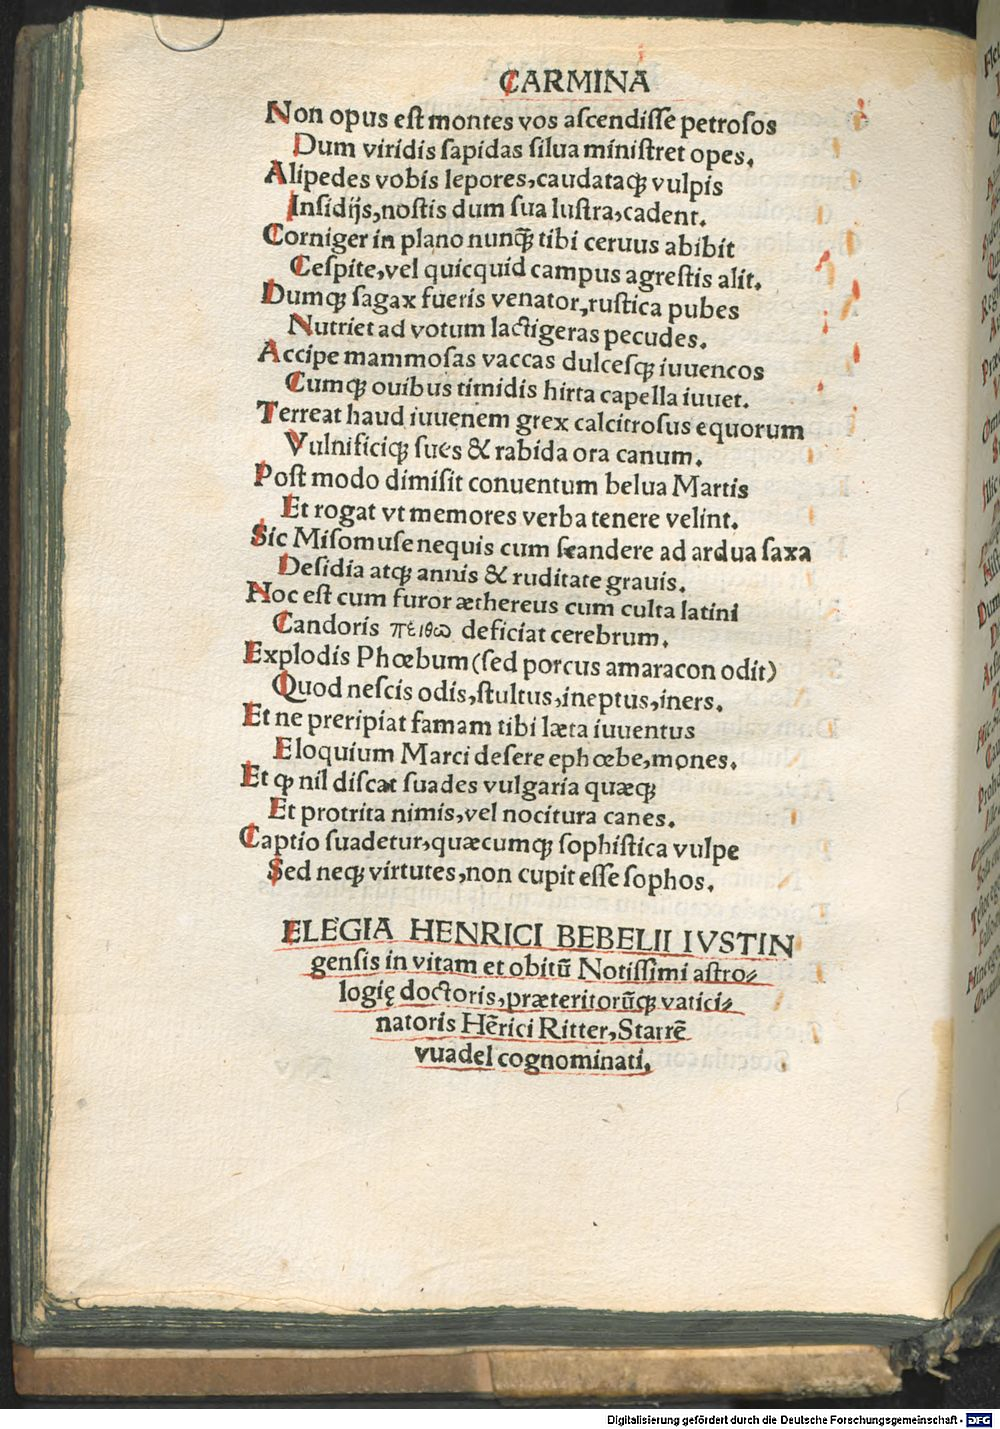 CARMINA
Non opus est montes vos ascendisse petrosos
Dum viridis sapidas silua ministret opes.
Alipedes vobis lepores,caudataqꝫ vulpis
Insidijs,nostis dum sua lustra,cadent.
Corniger in plano nunq̃ tibi ceruus abibit
Cespite,vel quicquid campus agrestis alit.
Dumqꝫ sagax fueris venator,rustica pubes
Nutriet ad votum lactigeras pecudes.
Accipe mammosas vaccas dulcesqꝫ iuuencos
Cumqꝫ ouibus timidis hirta capella iuuet.
Terreat haud iuuenem grex calcitrosus equorum
Vulnificiqꝫ sues & rabida ora canum.
Post modo dimisit conuentum belua Martis
Et rogat vt memores verba tenere velint.
Sic Misomuse nequis cum scandere ad ardua saxa
Desidia atqꝫ annis & ruditate grauis.
Noc est cum furor æthereus cum culta latini
Candoris πειθω deficiat cerebrum.
Explodis Phœbum(sed porcus amaracon odit)
Quod nescis odis,stultus,ineptus,iners.
Et ne preripiat famam tibi læta iuuentus
Eloquium Marci desere ephœbe,mones.
Et ꝙ nil discat suades vulgaria quæqꝫ
Et protrita nimis,vel nocitura canes.
Captio suadetur,quæcumqꝫ sophistica vulpe
Sed neqꝫ virtutes,non cupit esse sophos.
ELEGIA HENRICI BEBELII IVSTIN
gensis in vitam et obitũ Notissimi astro⸗
logię doctoris,præteritorũqꝫ vatici⸗
natoris Hẽrici Ritter,Starrẽ
vuadel cognominati.
Digitalisierung gefördert durch die Deutsche Forschungsgemeinschaft - DFG